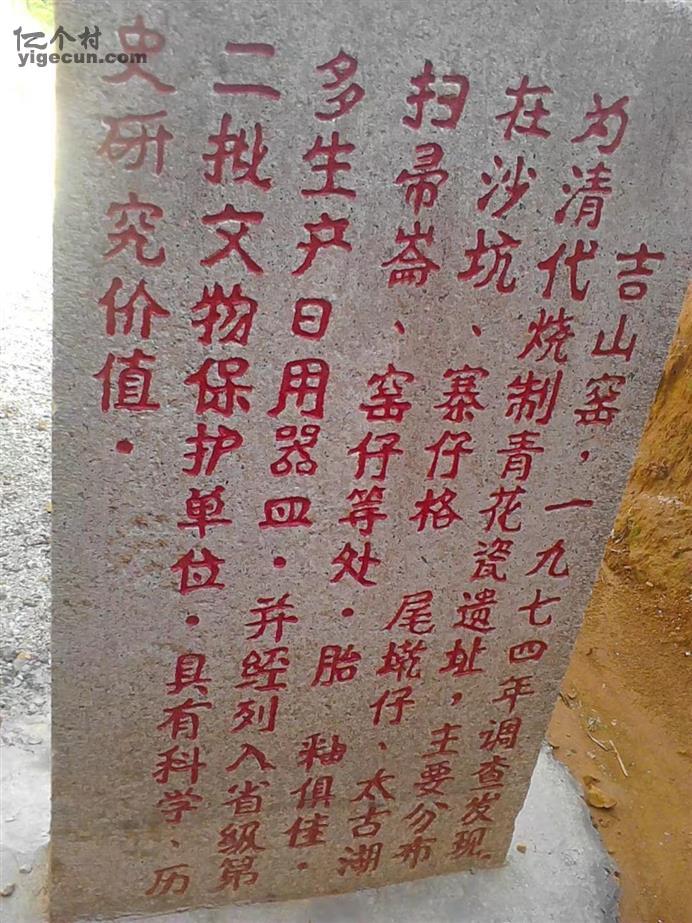 吉山窑，一九七四年调查发现
为清代烧制青花瓷遗址，主要分布
在沙坑、寨仔格 尾仔、太古湖
扫帚崙、窑仔等处．胎 釉俱佳．
多生产日用器皿．并经列入省级第
二拟文物保护单位．具有科学、历
史研究价值．
亿个村
yigecun.com